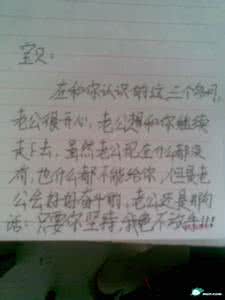 宝贝:
在和你认识的这三个多月,
老公很开心,老公想和你继续
走下去,虽然老公现在什么都没
有,也什么都不能给你,但是老
公会好好奋斗的,老公还是那句
话:只要你坚持,我绝不放弃!!!